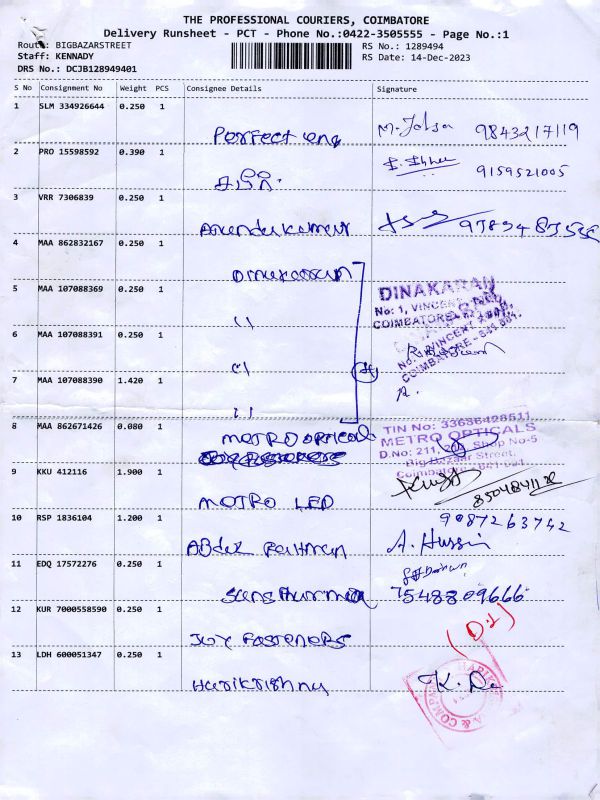 THE PROFESSIONAL COURIERS, COIMBATORE
Delivery Runsheet - PCT - Phone No.:0422-3505555 - Page No.:1
Route: BIGBAZARSTREET
RS No.: 1289494
Staff: KENNADY
RS Date: 14-Dec-2023
DRS No.: DCJB128949401
S No Consignment No Weight PCS Consignee Details Signature
1 SLM 334926644 0.250 1
Perfect eng 9843217119
2 PRO 15598592 0.390 1
9159521005
3 VRR 7306839 0.250 1
4 MAA 862832167 0.250 1
DINAKARAN
5 MAA 107088369 0.250 1
No: 1, VINCENT
COIMBATORE
6 MAA 107088391 0.250 1
7 MAA 107088390 1.420 1
8 MAA 862671426 0.080 1
TIN No: 33686428511
METRO OPTICALS
METRO OPTICALS
D.No: 211, Shop No-5
Big Bazaar Street,
9 KKU 412116 1.900 1
Coimbatore - 641 001
METRO LED
10 RSP 1836104 1.200 1
9087263742
ABdul Rahman A. Hussin
11 EDQ 17572276 0.250 1
7548809666
12 KUR 7000558590 0.250 1
JOY FASTENERS
13 LDH 600051347 0.250 1
Harikrishna